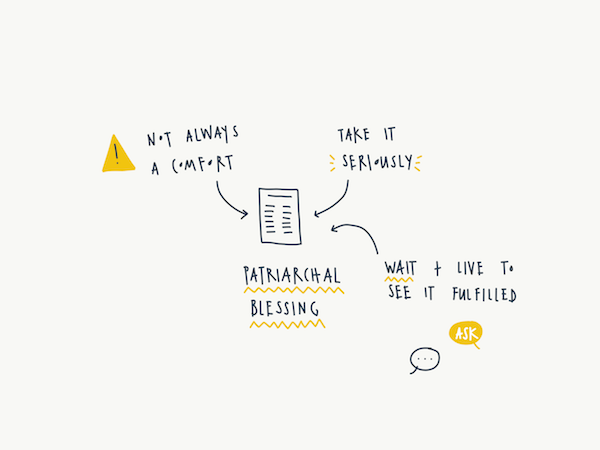 !
NOT ALWAYS
A COMFORT
TAKE IT
SERIOUSLY
PATRIARCHAL
BLESSING
WAIT + LIVE TO
SEE IT FULFILLED
ASK
...